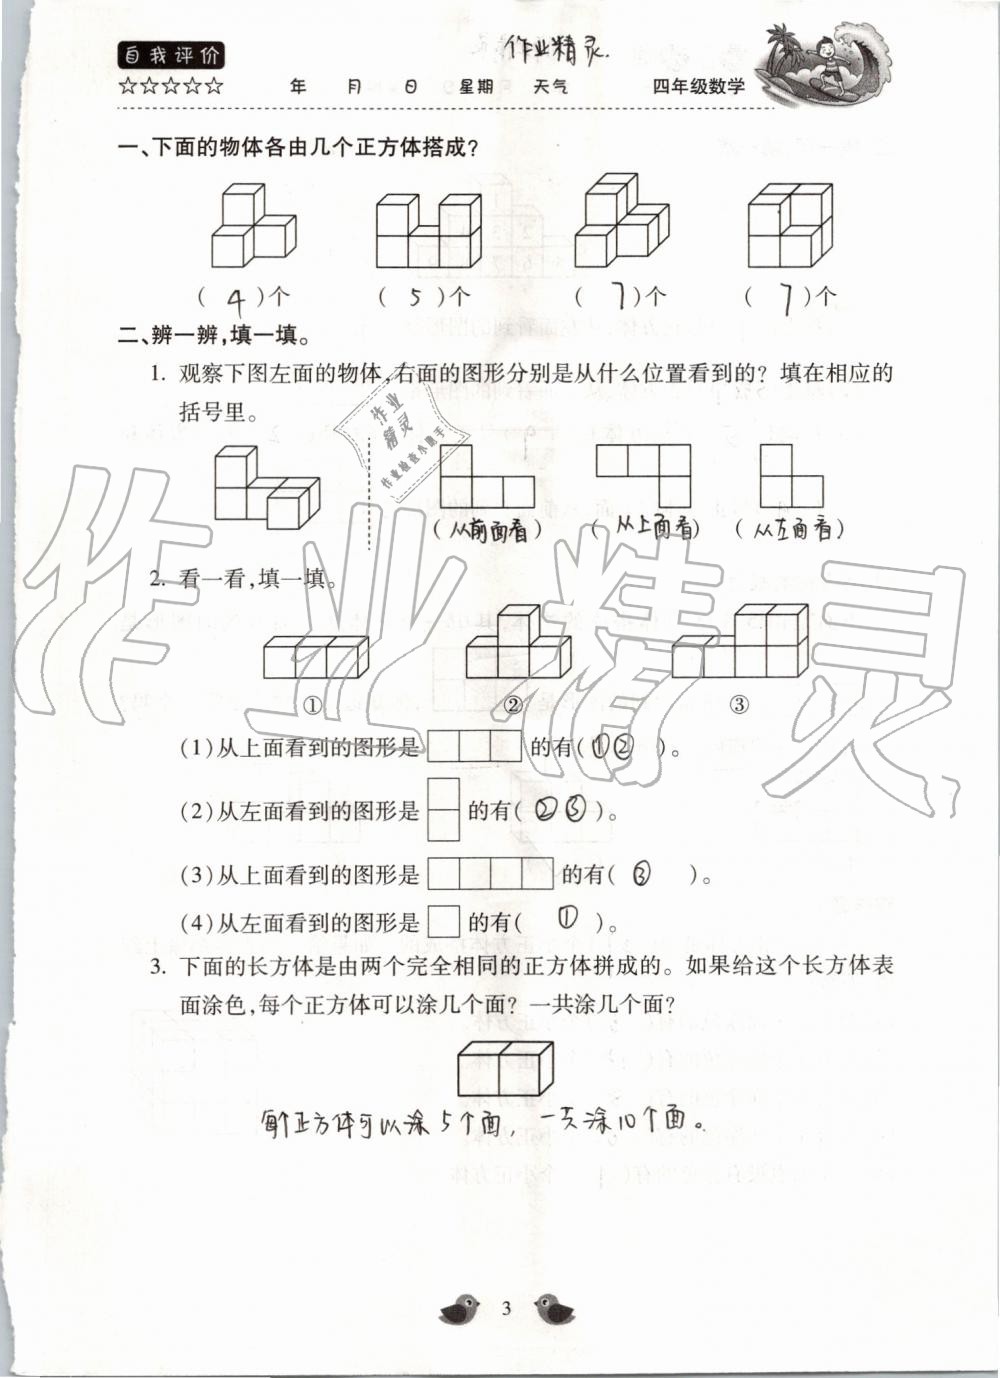 自我评价
作业精灵
☆☆☆☆☆ 年 月 日 星期 天气 四年级数学
一、下面的物体各由几个正方体搭成？
( 4 )个 ( 5 )个 ( 7 )个 ( 7 )个
二、辨一辨，填一填。
1. 观察下图左面的物体，右面的图形分别是从什么位置看到的？填在相应的
括号里。
作业
精灵
作业检查小助手
(从前面看) (从上面看) (从左面看)
2. 看一看，填一填。
① ② ③
(1)从上面看到的图形是 的有(①② )。
(2)从左面看到的图形是 的有( ②③ )。
(3)从上面看到的图形是 的有( ③ )。
(4)从左面看到的图形是 的有( ① )。
3. 下面的长方体是由两个完全相同的正方体拼成的。如果给这个长方体表
面涂色，每个正方体可以涂几个面？一共涂几个面？
每个正方体可以涂5个面，一共涂10个面。
作业精灵
3